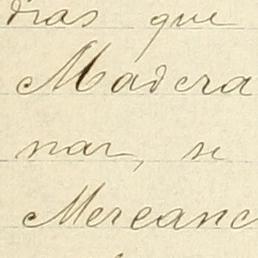 dias que
Madera
nar, se
Mercanc